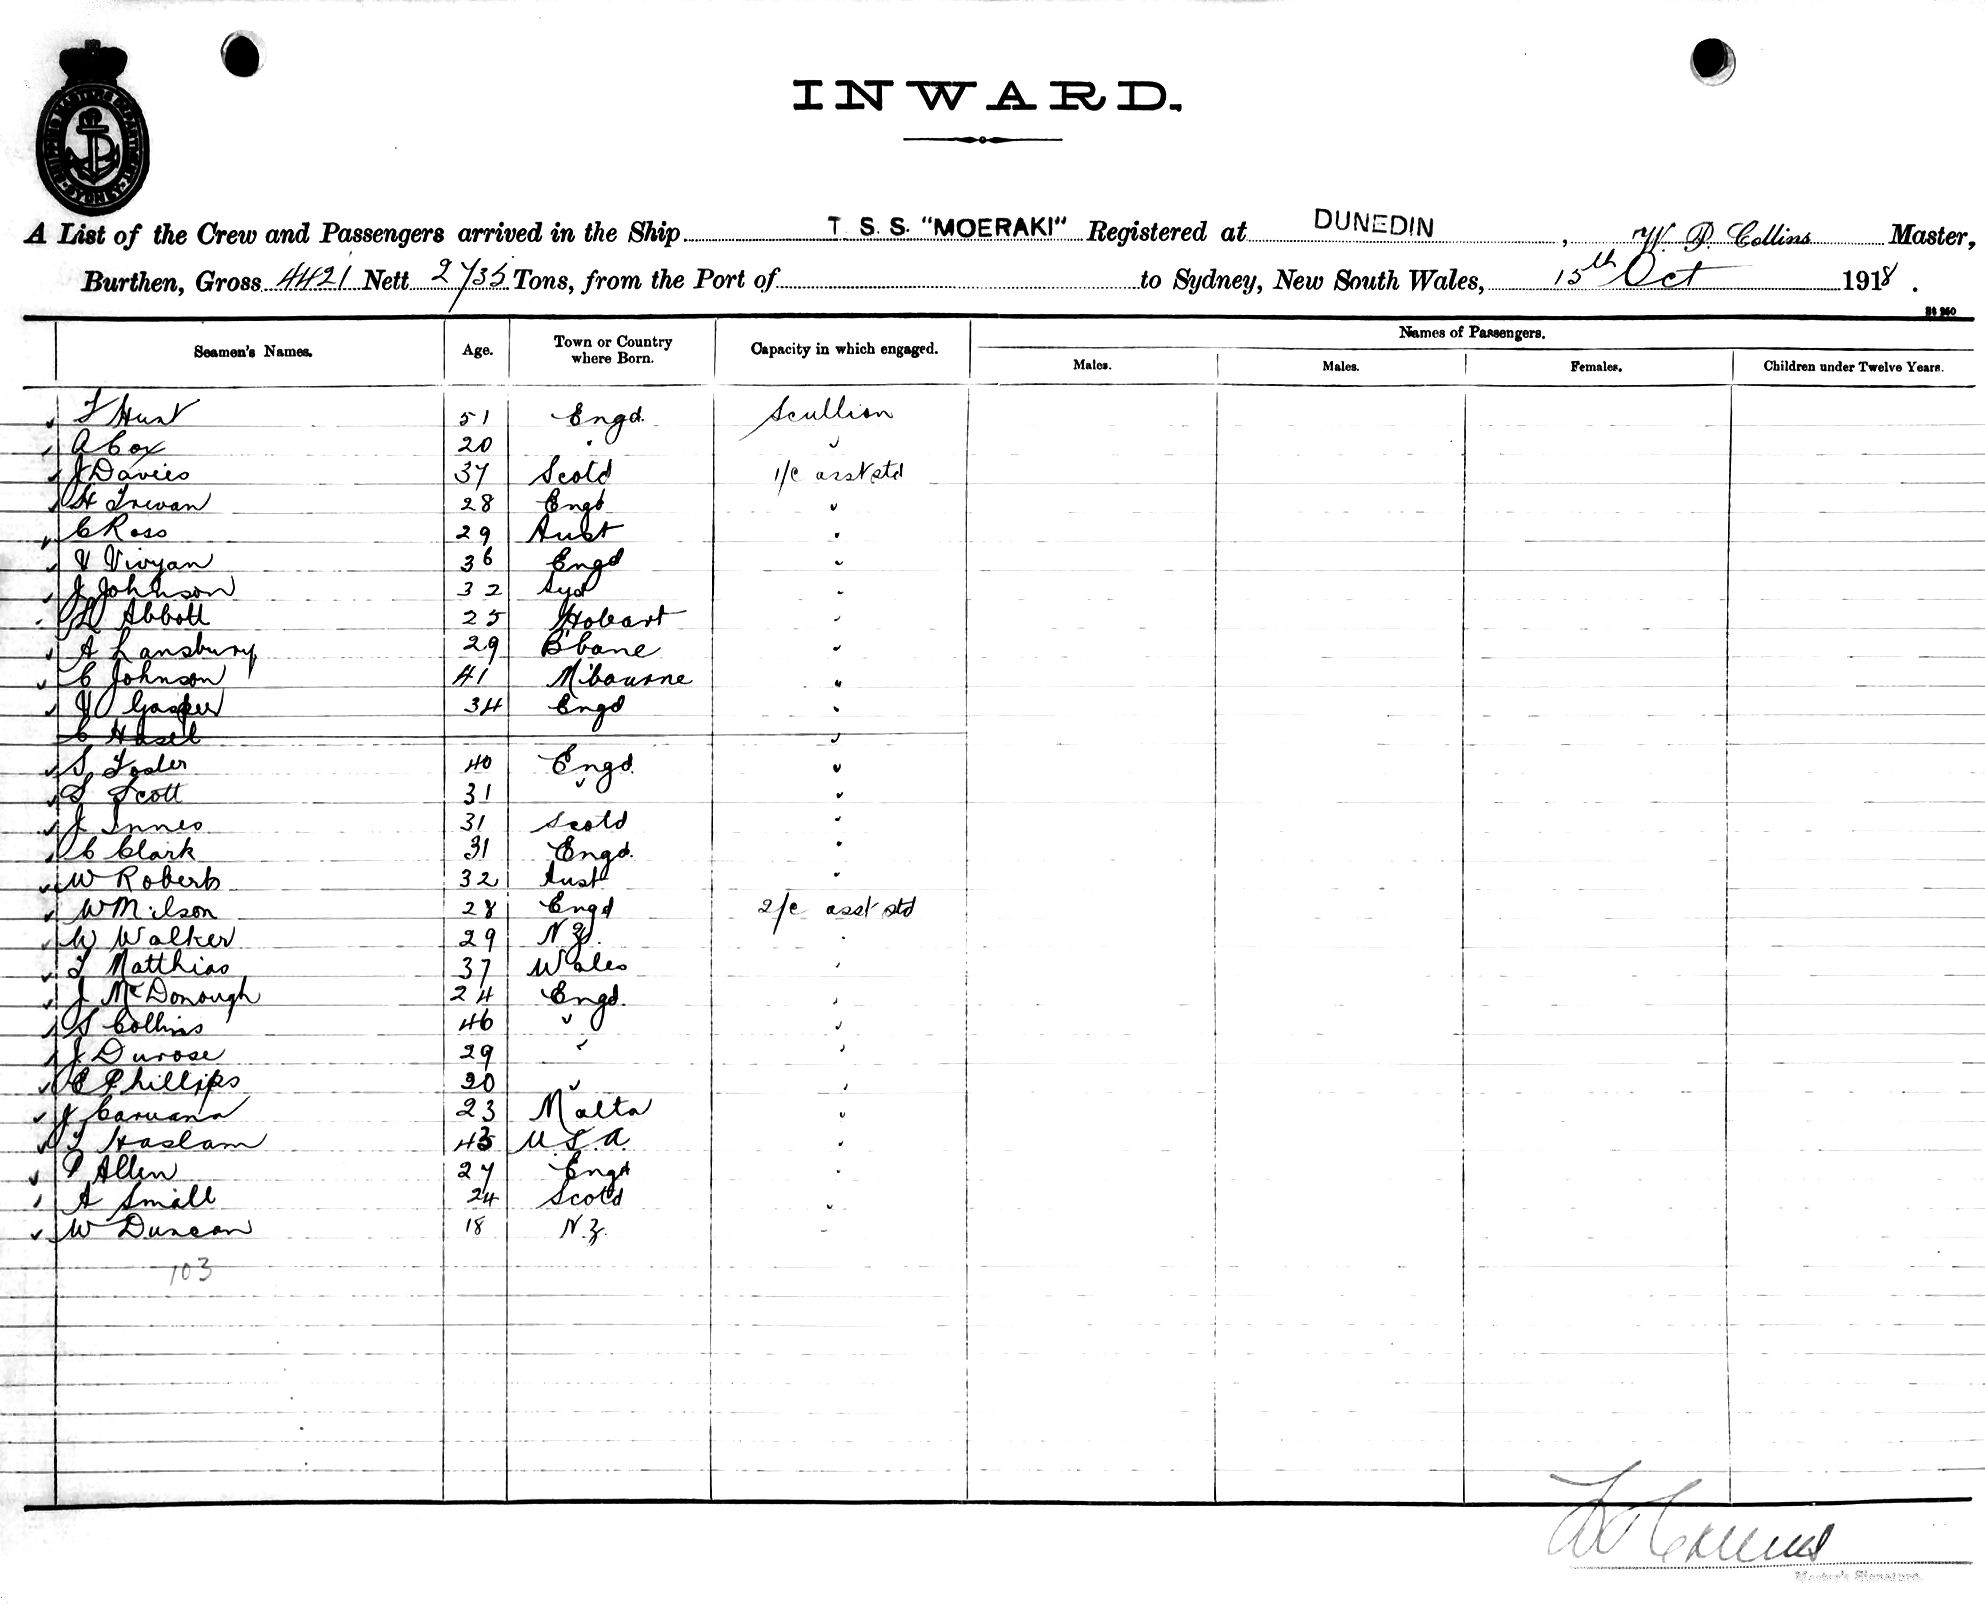 SHIPPING MASTERS DEPARTMENT SYDNEY
INWARD.
A List of the Crew and Passengers arrived in the Ship T. S. S. "MOERAKI" Registered at DUNEDIN, W. P. Collins Master,
Burthen, Gross 4421 Nett 2735 Tons, from the Port of to Sydney, New South Wales, 15th Oct 1918.
Seamen's Names. Age. Town or Country where Born. Capacity in which engaged. Names of Passengers.
Males. Males. Females. Children under Twelve Years.
T Hunt 51 Engd. Scullion
A Cox 20 " "
J Davies 37 Scotd 1/c asst std
H Trevan 28 Engd "
C Ross 29 Aust "
V Vivyan 36 Engd "
J Johnson 32 Syd "
Abbott 25 Hobart "
A Lansbury 29 B'bane "
C Johnson 41 M'bourne "
V Gasper 34 Engd "
C Hasel "
S Foster 40 Engd. "
S Scott 31 " "
J Innes 31 Scotd "
C Clark 31 Engd. "
W Roberts 32 Aust "
W Milson 28 Engd 2/c asst std
W Walker 29 N Z. "
T Matthias 37 Wales "
J McDonough 24 Engd. "
S Collins 46 " "
J Durose 29 " "
E Phillips 20 " "
J Caruana 23 Malta "
T Haslam 43 U.S.A. "
P Allen 27 Engd "
A Small 24 Scotd "
W Duncan 18 N.Z. "
103
W P Collins
Master's Signature.